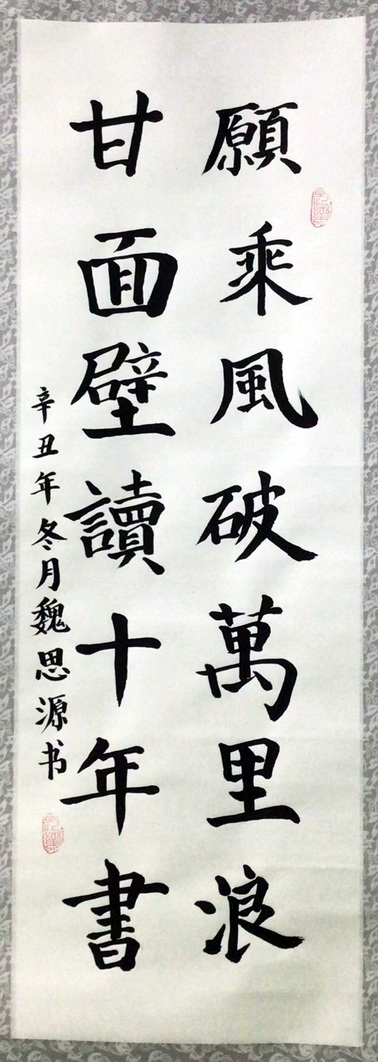 願乘風破萬里浪
甘面壁讀十年書
辛丑年冬月魏思源书